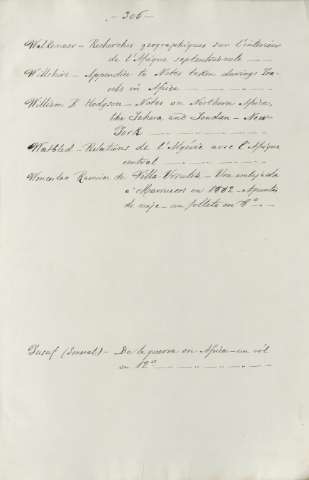 - 306 -
Walkenaer - Recherches geographiques sur l'interieur
de l'Afrique septentrionale
Wiltshire - Appendice to Notes taken durings Tra-
vels in Africa
William B Hodgson - Notes on Northern Africa,
the Sahara and Soudan - New
York
Watbled - Relations de l'Algérie avec l'Afrique
central
Wenceslao Ramirez de Villa Urrutia - Una embajada
a Marruecos en 1882 - Apuntes
de viaje - un folleto en 8º
Yusuf (General) - De la guerra en Africa - un vol
en 12º